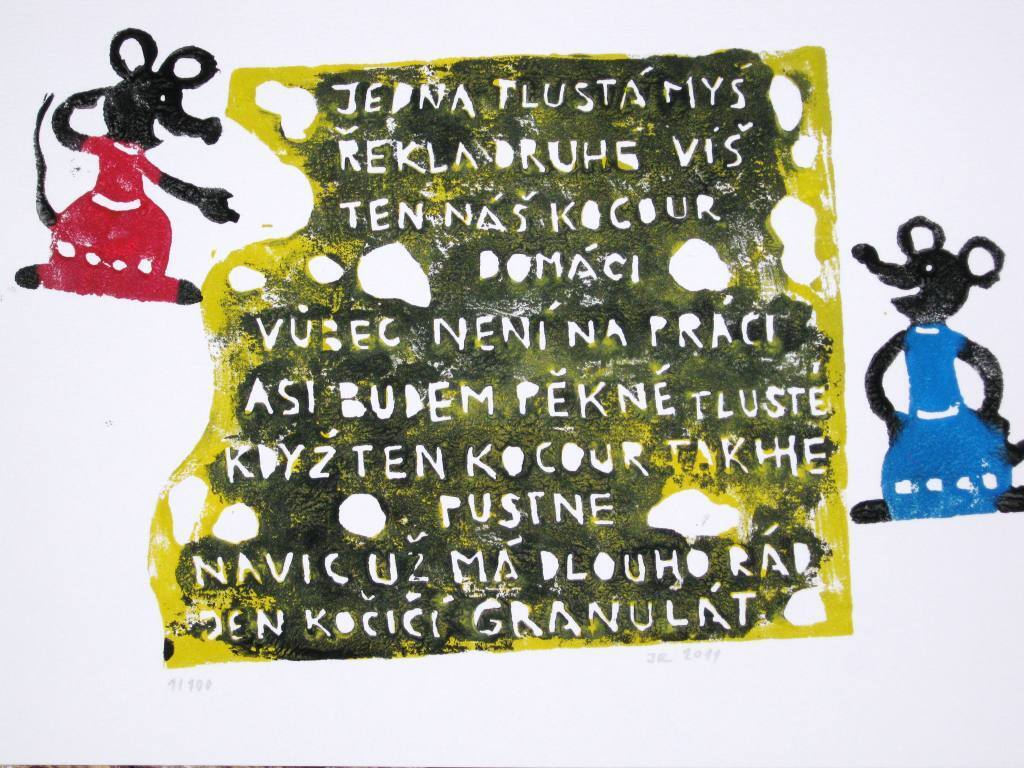 JEDNA TLUSTÁ MYŠ
ŘEKLA DRUHÉ VÍŠ
TEN NÁŠ KOCOUR
DOMÁCI
VŮBEC NENÍ NA PRÁCI
ASI BUDEM PĚKNĚ TLUSTÉ
KDYŽ TEN KOCOUR TAKHLE
PUSTNE
NAVIC UŽ MÁ DLOUHO RÁD
JEN KOČIČÍ GRANULÁT
1/100
JR 2011